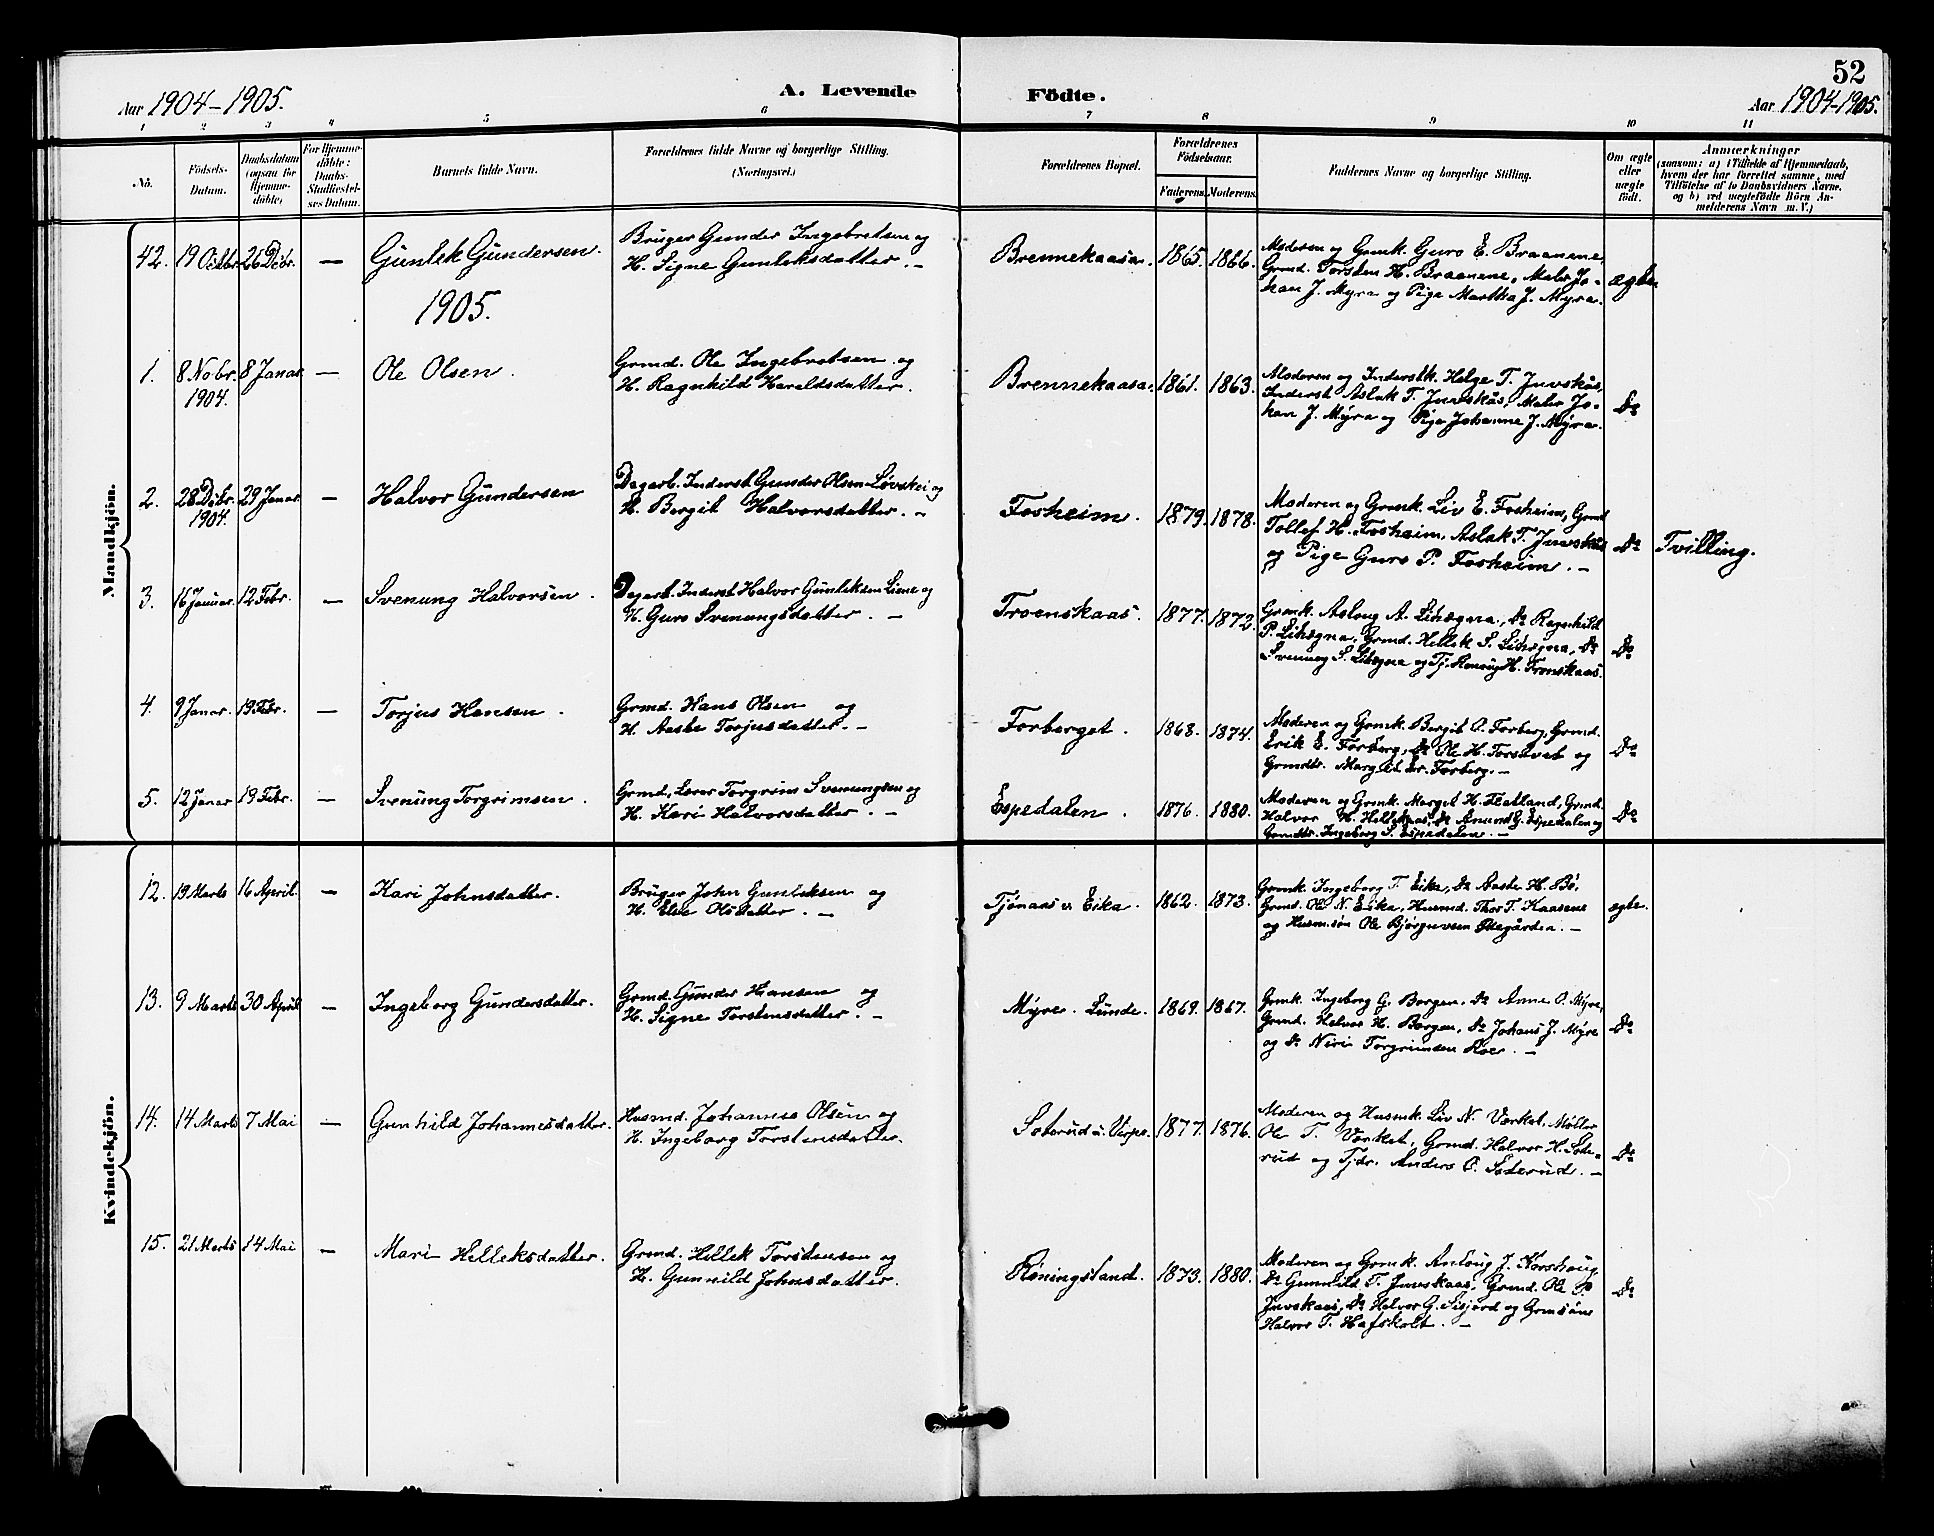 52
Aar 1904-1905.
A. Levende
Födte.
Aar 1904-1905.
1 2 3 4 5 6 7 8 9 10 11
No.
Födsels-
Datum.
Daabsdatum
(ogsaa for
Hjemme-
döbte)
For Hjemme-
döbte:
Daabs-
Stadfæstel-
ses Datum.
Barnets fulde Navn.
Forældrenes fulde Navne og borgerlige Stilling.
(Næringsvei.)
Forældrenes Bopæl.
Forældrenes
Födselsaar.
Faderens. Moderens.
Faddernes Navne og borgerlige Stilling.
Om ægte
eller
uægte
födt.
Anmærkninger
(saasom: a) i Tilfælde af Hjemmedaab,
hvem der har forrettet samme, med
Tilföielse af to Daabsvidners Navne,
og b) ved uægtefödte Börn An-
melderens Navn m. V.)
Mandkjön.
42. 19 Octbr. 26 Dcbr. — Gunlek Gundersen.
Brüger Gunder Ingebretsen og
H. Signe Gunleksdatter. —
Brennekaasa. 1865. 1866.
Moderen og Grmk. Guro E. Braanene,
Grmd. Torsten H. Braanene, Maler Jo-
han J. Myra og Pige Martha J. Myra.
ægte
1905.
1. 8 Nobr. 1904. 8 Januar. — Ole Olsen.
Grmd. Ole Ingebretsen og
H. Ragnhild Haraldsdatter.
Brennekaasa. 1861. 1863.
Moderen og Inderstk. Helge T. Juvskås,
Inderst Aslak T. Juvskås, Maler Jo-
han J. Myra og Pige Johanne J. Myra.
Do
2. 28 Dcbr. 1904. 29 Januar. — Halvor Gundersen
Dagarb. Inderst Gunder Olsen Løvskei og
H. Bergit Halvorsdatter. —
Fosheim. 1879. 1878.
Moderen og Grmk. Liv E. Fosheim, Grmd
Tollef H. Fosheim, Aslak T. Juvskås
og Pige Guro P. Fosheim. —
Do Tvilling.
3. 16 Januar. 12 Febr. — Svenung Halvorsen.
Dagarb. Inderst Halvor Gunleksen Liene og
H. Guro Svenungsdatter. —
Troenskaas. 1877. 1872.
Grmk. Aslaug A. Lihægna, Do Ragnhild
P. Lihægna, Grmd. Hellek S. Lihægna, Do
Svenung S. Lihægna og Tj. H. Tronskaas.
Do
4. 9 Januar. 19 Febr. — Torjus Hansen.
Grmd. Hans Olsen og
H. Aaste Torjusdatter. —
Forberget. 1868. 1874.
Moderen og Grmk. Bergit O. Forberg, Grmd.
Erik E. Forberg, Do Ole H. Torstvet og
Grmdtr. Margit Er. Forberg. —
Do
5. 12 Januar 19 Febr. — Svenung Torgrimsen.
Grmd, Lærer Torgrim Svenungsen og
H. Kari Halvorsdatter. —
Espedalen. 1876. 1880.
Moderen og Grmk. Margit H. Flatland, Grmd.
Halvor H. Hellekaas, Do Amund G. Espedalen og
Grmdtr. Ingeborg S. Espedalen. —
Do
Kvindekjön.
12. 19 Marts 16 April. — Kari Johnsdatter.
Brüger John Gunleksen og
H. Else Olsdatter. —
Tjønaas u. Eika. 1862. 1873.
Grmk. Ingeborg T. Eika, Do Aaste H. Bö,
Grmd. Ole N. Eika, Husmd. Thor T. Kaasene
og Husm.søn Ole Bjørguvsen
ægte.
13. 9 Marts 30 April — Ingeborg Gundersdatter.
Grmd. Gunder Hansen og
H. Signe Torstensdatter. —
Myre. Lunde. 1869. 1867.
Grmk. Ingeborg G. Borgen, Do Anne O. Myre,
Grmd. Halvor H. Borgen, Do Johans J. Myre
og Do Niri Torgrimsen Roe. —
Do
14. 14 Marts 7 Mai — Gunhild Johannesdatter.
Husmd. Johannes Olsen og
H. Ingeborg Torstensdatter.
Soterud u. Verpe. 1877. 1876.
Moderen og Husmk. Liv N. Værket, Møller
Ole T. Værket, Grmd. Halvor H. Sote-
rud og Tjdr. Anders O. Soterud. —
Do
15. 21 Marts 14 Mai — Mari Helleksdatter.
Grmd. Hellek Torstensen og
H. Gunnild Johnsdatter.
Røningsland. 1873. 1880.
Moderen og Grmk. Anlaug J. Norshaug
Do Gunnild T. Juvskaas, Grmd. Ole P.
Juvskaas, Do Halvor G. Sisjord og Grmsøn
Halvor T. Hafskolt. —
Do